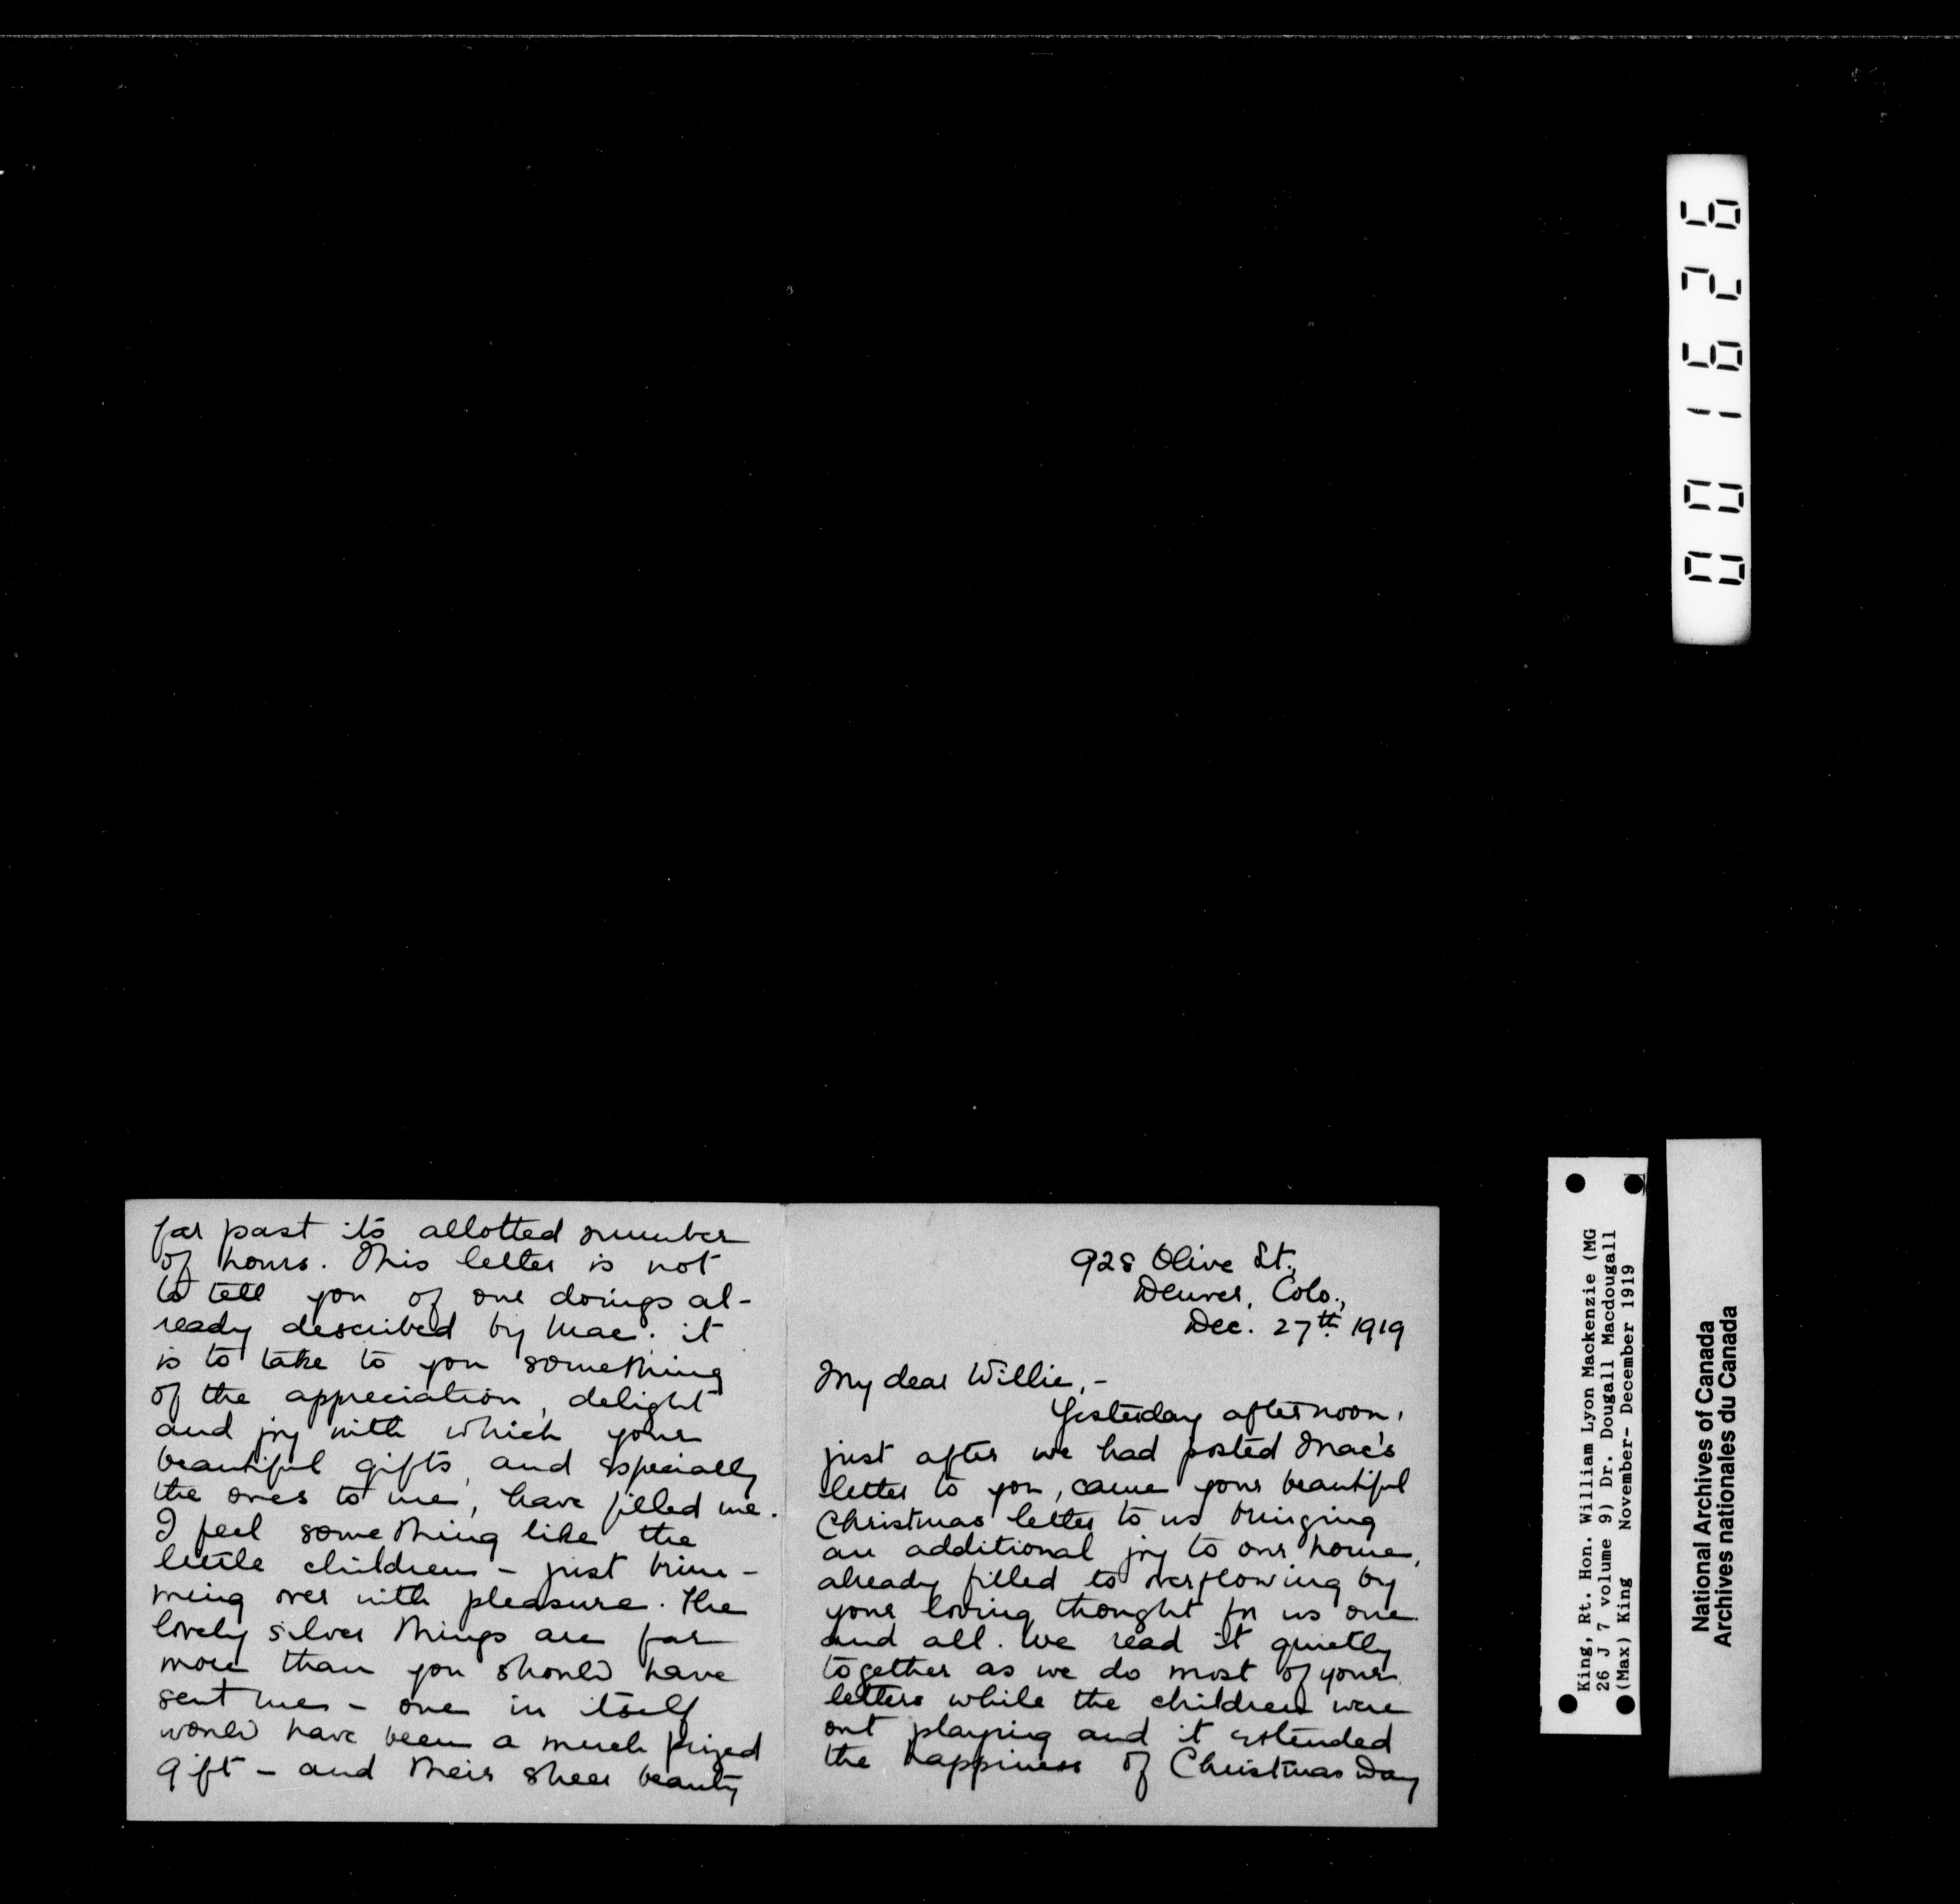 928 Olive St.,
Denver, Colo.,
Dec. 27th. 1919
My dear Willie,-
Yesterday afternoon,
just after we had posted Mac's
letter to you, came your beautiful
Christmas letter to us bringing
an additional joy to our home,
already filled to overflowing by
your loving thought for us one
and all. We read it quietly
together as we do most of your
letters while the children were
out playing and it extended
the happiness of Christmas Day
far past its allotted number
of hours. This letter is not
to tell you of our doings al-
ready described by Mac. it
is to take to you something
of the appreciation, delight
and joy with which your
beautiful gifts, and especially
the ones to me, have filled me.
I feel something like the
little children - just brim-
ming over with pleasure. The
lovely silver things are far
more than you should have
sent me - one in itself
would have been a much prized
gift - and their sheer beauty
001626
King, Rt. Hon. William Lyon Mackenzie (MG
26 J 7 volume 9) Dr. Dougall Macdougall
(Max) King November- December 1919
National Archives of Canada
Archives nationales du Canada